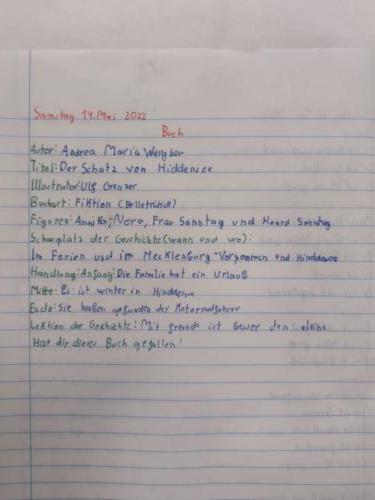 Samstag 14. Mai 2022
Buch
Autor: Andrea Maria
Titel: Der Schatz von Hiddensee
Illustrator: Ulf Grenzer
Buchart: Fiktion (Belletristik)
Figuren: Annika, Nero, Frau Sonntag und Sonntag
Schauplatz der Geschichte (wann und wo):
Im Ferien und im Mecklenburg-Vorpommern und
Handlung: Anfang: Die Familie hat ein Urlaub
Mitte: Es ist winter in
Ende: Sie haben gefunden der Motorradfahrer
Lektion der Geschichte: Mit ist den
Hat dir dieses Buch gefallen